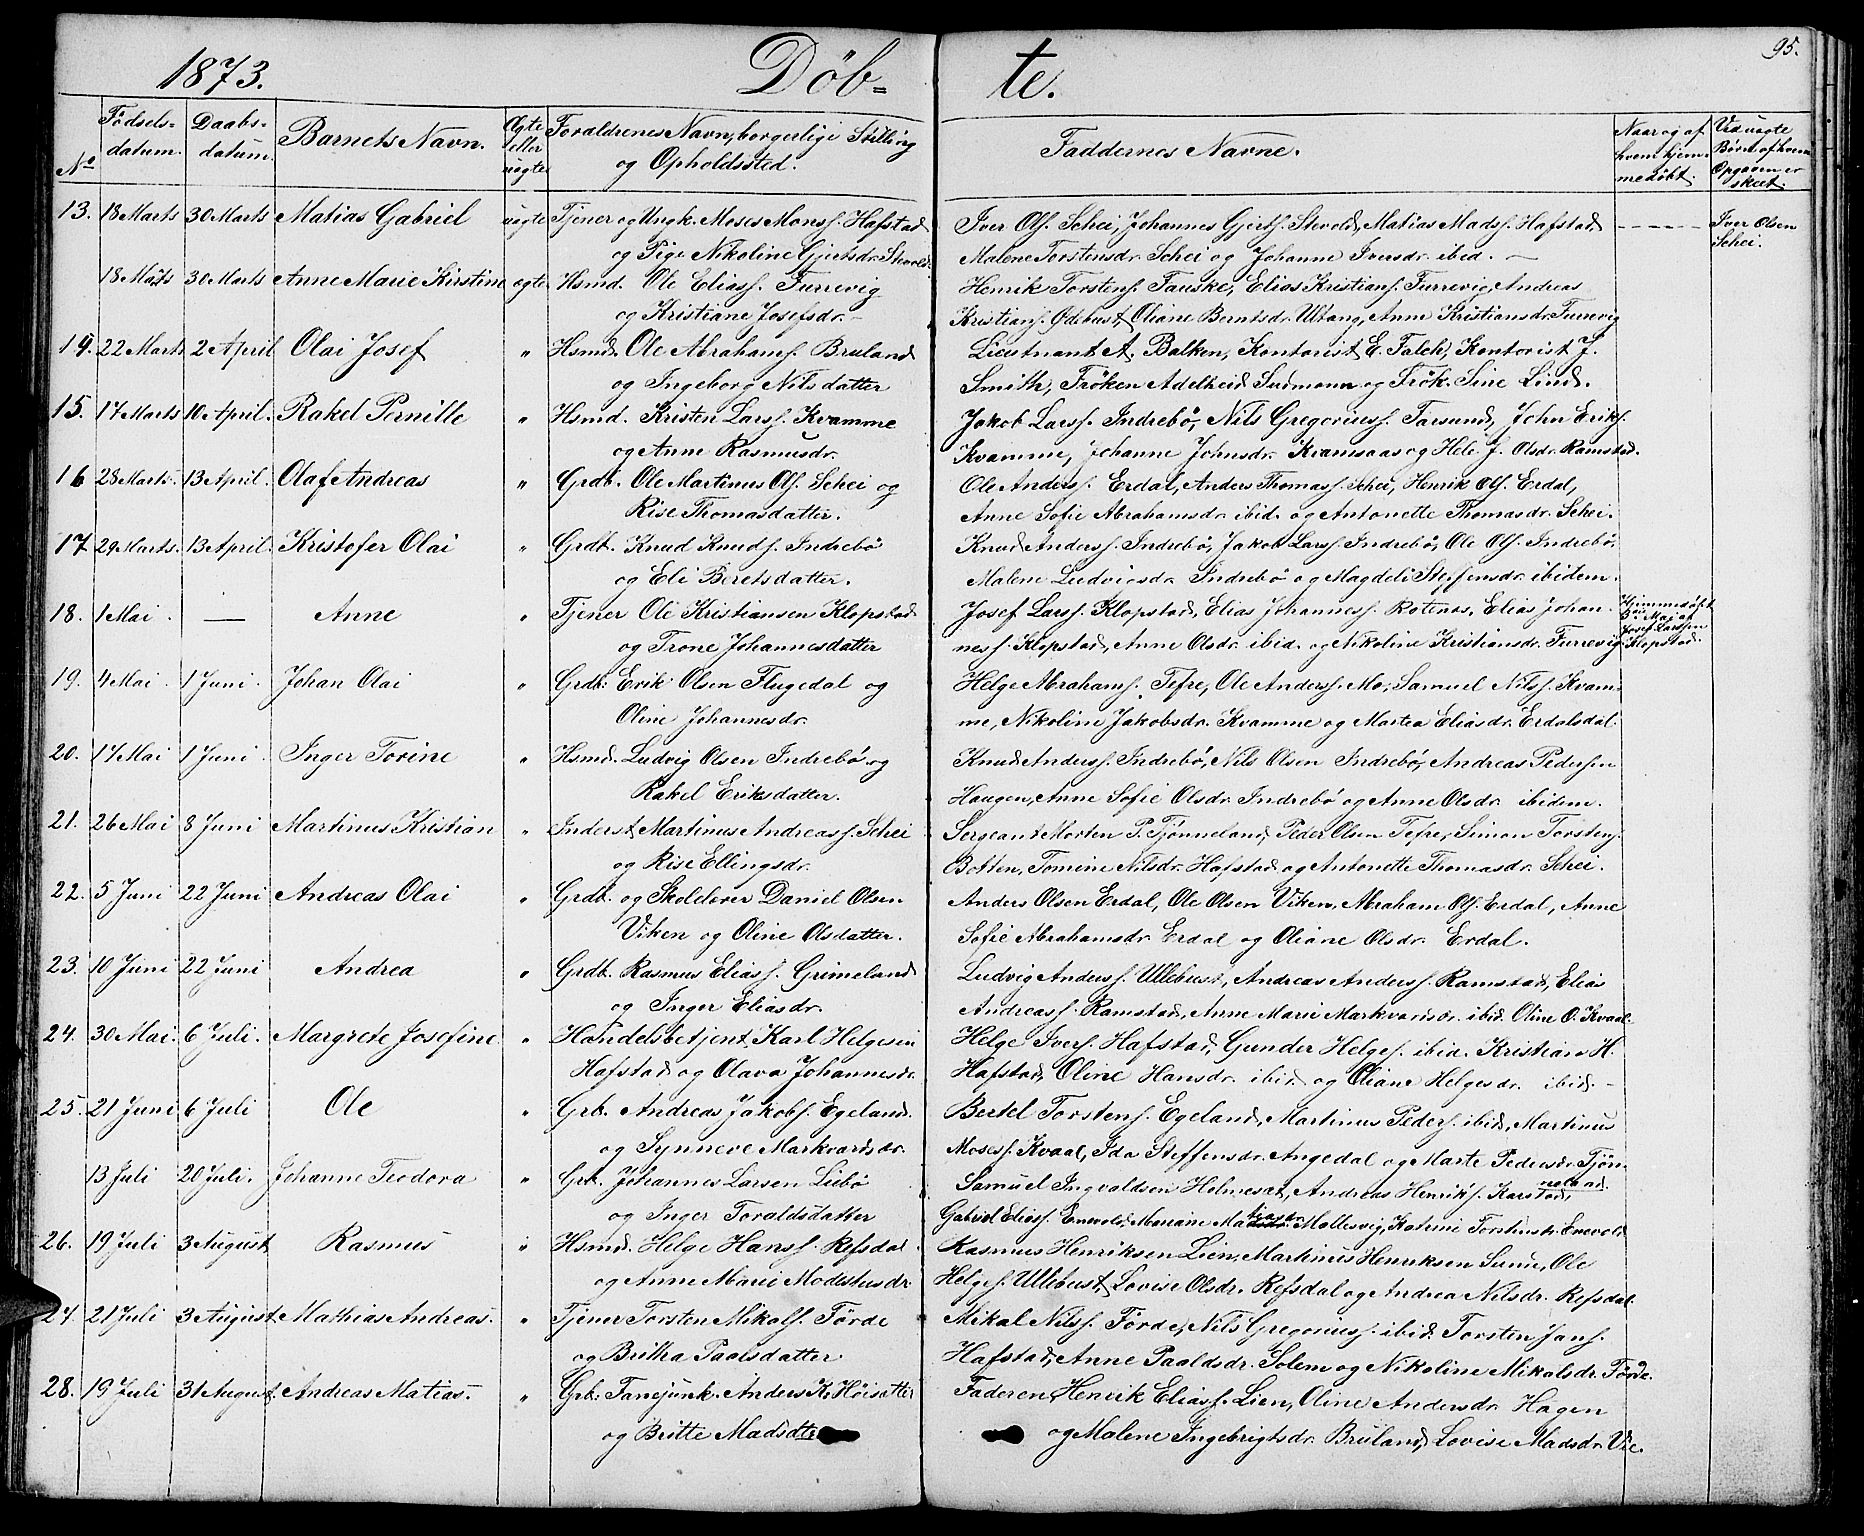 95.
1873. Døb- te.
No Fødsels-datum. Daabs-datum. Barnets Navn. Ægte eller uægte Forældrenes Navn, borgerlige Stilling og Opholdssted. Faddernes Navne. Naar og af hvem hjem-medøbt. Ved uægte Børn af hvem Opgaven er skeet.
13. 18 Marts 30 Marts Matias Gabriel uægte Tjener og Ungk. Moses Monss. Hafstad Iver Ols. Schei, Johannes Gjerts. Stevold, Matias Madss. Hafstad, ----- Iver Olsen
og Pige Nikoline Gjertsdr. Stevold. Malene Torstensdr. Schei og Johanne Iversdr. ibid. — Schei.
18 Marts 30 Marts Anne Marie Kirstine ægte Hsmd. Ole Eliass. Furrevig Henrik Torstens. Fauske, Elias Kristians. Furrevig, Andreas
og Kristiane Josefsdr. – Kristians. Ødebust, Oliane Berntsdr. Utvang, Anne Kristiansdr. Furrevig
14. 22 Marts 2 April Olai Josef " Hsmd. Ole Abrahams. Bruland Lieutnant A. Balken, Kontorist E. Falch, Kontorist J.
og Ingeborg Nilsdatter Smith, Frøken Adelheid Sudmann og Frøk. Sine Lind.
15. 17 Marts 10 April. Rakel Pernille " Hsmd. Kristen Larss. Kvamme Jakob Larss. Indrebø, Nils Gregoriuss. Farsund, John Eriks.
og Anne Rasmusdr. Kvamme, Johanne Johnsdr. Kvamsaas og Hele J. Olsdr. Ramstad.
16 28 Marts. 13 April. Olaf Andreas " Grdb. Ole Martinus Ols. Schei og Ole Anderss. Erdal, Anders Thomass. Schei, Henrik Ols. Erdal,
Rise Thomasdatter. Anne Sofie Abrahamsdr. ibid. og Antonette Thomasdr. Schei.
17 29 Marts. 13 April. Kristofer Olai " Grdb. Knud Knuds. Indrebø Knud Anderss. Indrebø, Jakob Larss. Indrebø, Ole Ols. Indrebø,
og Eli Beretsdatter. Malene Ludvigsdr. Indrebø og Magdeli Steffensdr. ibidem.
18. 1 Mai. — Anne " Tjener Ole Kristiansen Klopstad Josef Larss. Klopstad, Elias Johanness. Rotenes, Elias Johan- Hjemmedøbt
og Trone Johannesdatter ness. Klopstad, Anne Olsdr. ibid. og Nikoline Kristiansdr. Furrevig. Mai af Josef Larssen Klopstad.
19. 4 Mai. 1 Juni. Johan Olai " Grdb. Erik Olsen Flugedal og Helge Abrahams. Tefre, Ole Anderss. Mo, Samuel Nilss. Kvam-
Oline Johannesdr. me, Nikoline Jakobsdr. Kvamme og Martea Eliasdr. Erdalsdal.
20. 17 Mai 1 Juni. Inger Torine " Hsmd. Ludvig Olsen Indrebø og Knud Anderss. Indrebø, Nils Olsen Indrebø, Andreas Pedersen
Rakel Eriksdatter. Haugen, Anne Sofie Olsdr. Indrebø og Anne Olsdr. ibidem.
21. 26 Mai 8 Juni Martinus Kristian " Inderst Martinus Andreass. Schei Sergeant Morten P. Tjønneland, Peder Olsen Tefre, Simon Torstens.
og Rise Ellingsdr. Botten, Tomine Nilsdr. Hafstad og Antonette Thomasdr. Schei.
22. 5 Juni 22 Juni Andreas Olai " Grdb. og Skolelærer Daniel Olsen Anders Olsen Erdal, Ole Olsen Viken, Abraham Ols. Erdal, Anne
Viken og Oline Olsdatter. Sofie Abrahamsdr. Erdal og Oliane Olsdr. Erdal.
23. 10 Juni 22 Juni Andrea " Grdb. Rasmus Eliass. Grimeland Ludvig Anderss. Ullebust, Andreas Anderss. Ramstad, Elias
og Inger Eliasdr. Andreass. Ramstad, Anne Marie Markvardsdr. ibid. Oline O. Kvaal.
24. 30 Mai. 6 Juli. Margrete Josefine " Handelsbetjent Karl Helgesen Helge Ivers. Hafstad, Gunder Helges. ibid. Kristian H.
Hafstad og Olava Johannesdr. Hafstad, Oline Hansdr. ibid. og Oliane Helgesdr. ibid. –
25. 21 Juni 6 Juli Ole " Grb. Andreas Jakobs. Egeland. Bertel Torstens. Egeland, Martinus Peders. ibid, Martinus
og Synneve Markvardsdr. Mosess. Kvaal, Ida Steffensdr. Angedal og Marte Pedersdr. Tjøn-
13 Juli 20 Juli. Johanne Teodora " Grb. Johannes Larsen Liebø Samuel Ingvaldsen Helmesæt, Andreas Henriks. Karstad,
og Inger Toraldsdatter Gabriel Eliass. Enevold, Mariane Matiasdr. Mollesvig, Katrine Torstensdr. Enevold
26. 19 Juli 3 August Rasmus " Hsmd. Helge Hanss. Refsdal. Rasmus Henriksen Lien, Martinus Henriksen Sunde, Ole
og Anne Marie Modestusdr Helges. Ullebust, Lovise Olsdr. Refsdal og Andrea Nilsdr. Refsdal.
27. 21 Juli 3 August. Mathias Andreas. " Tjener Torsten Mikals. Førde Mikal Nilss. Førde, Nils Gregoriuss. ibid. Torsten Jans.
og Britha Paalsdatter Hafstad, Anne Paaldsdr. Solem og Nikoline Mikalsdr. Førde.
28. 19 Juli 31 August. Andreas Matias. " Grb. Tanejunk. Anders K. Høisæter Faderen, Henrik Eliass. Lien, Oline Andersdr. Hagen
og Britte Madsdtr og Malene Ingebrigtsdr. Bruland, Lovise Madsdr. Vie.